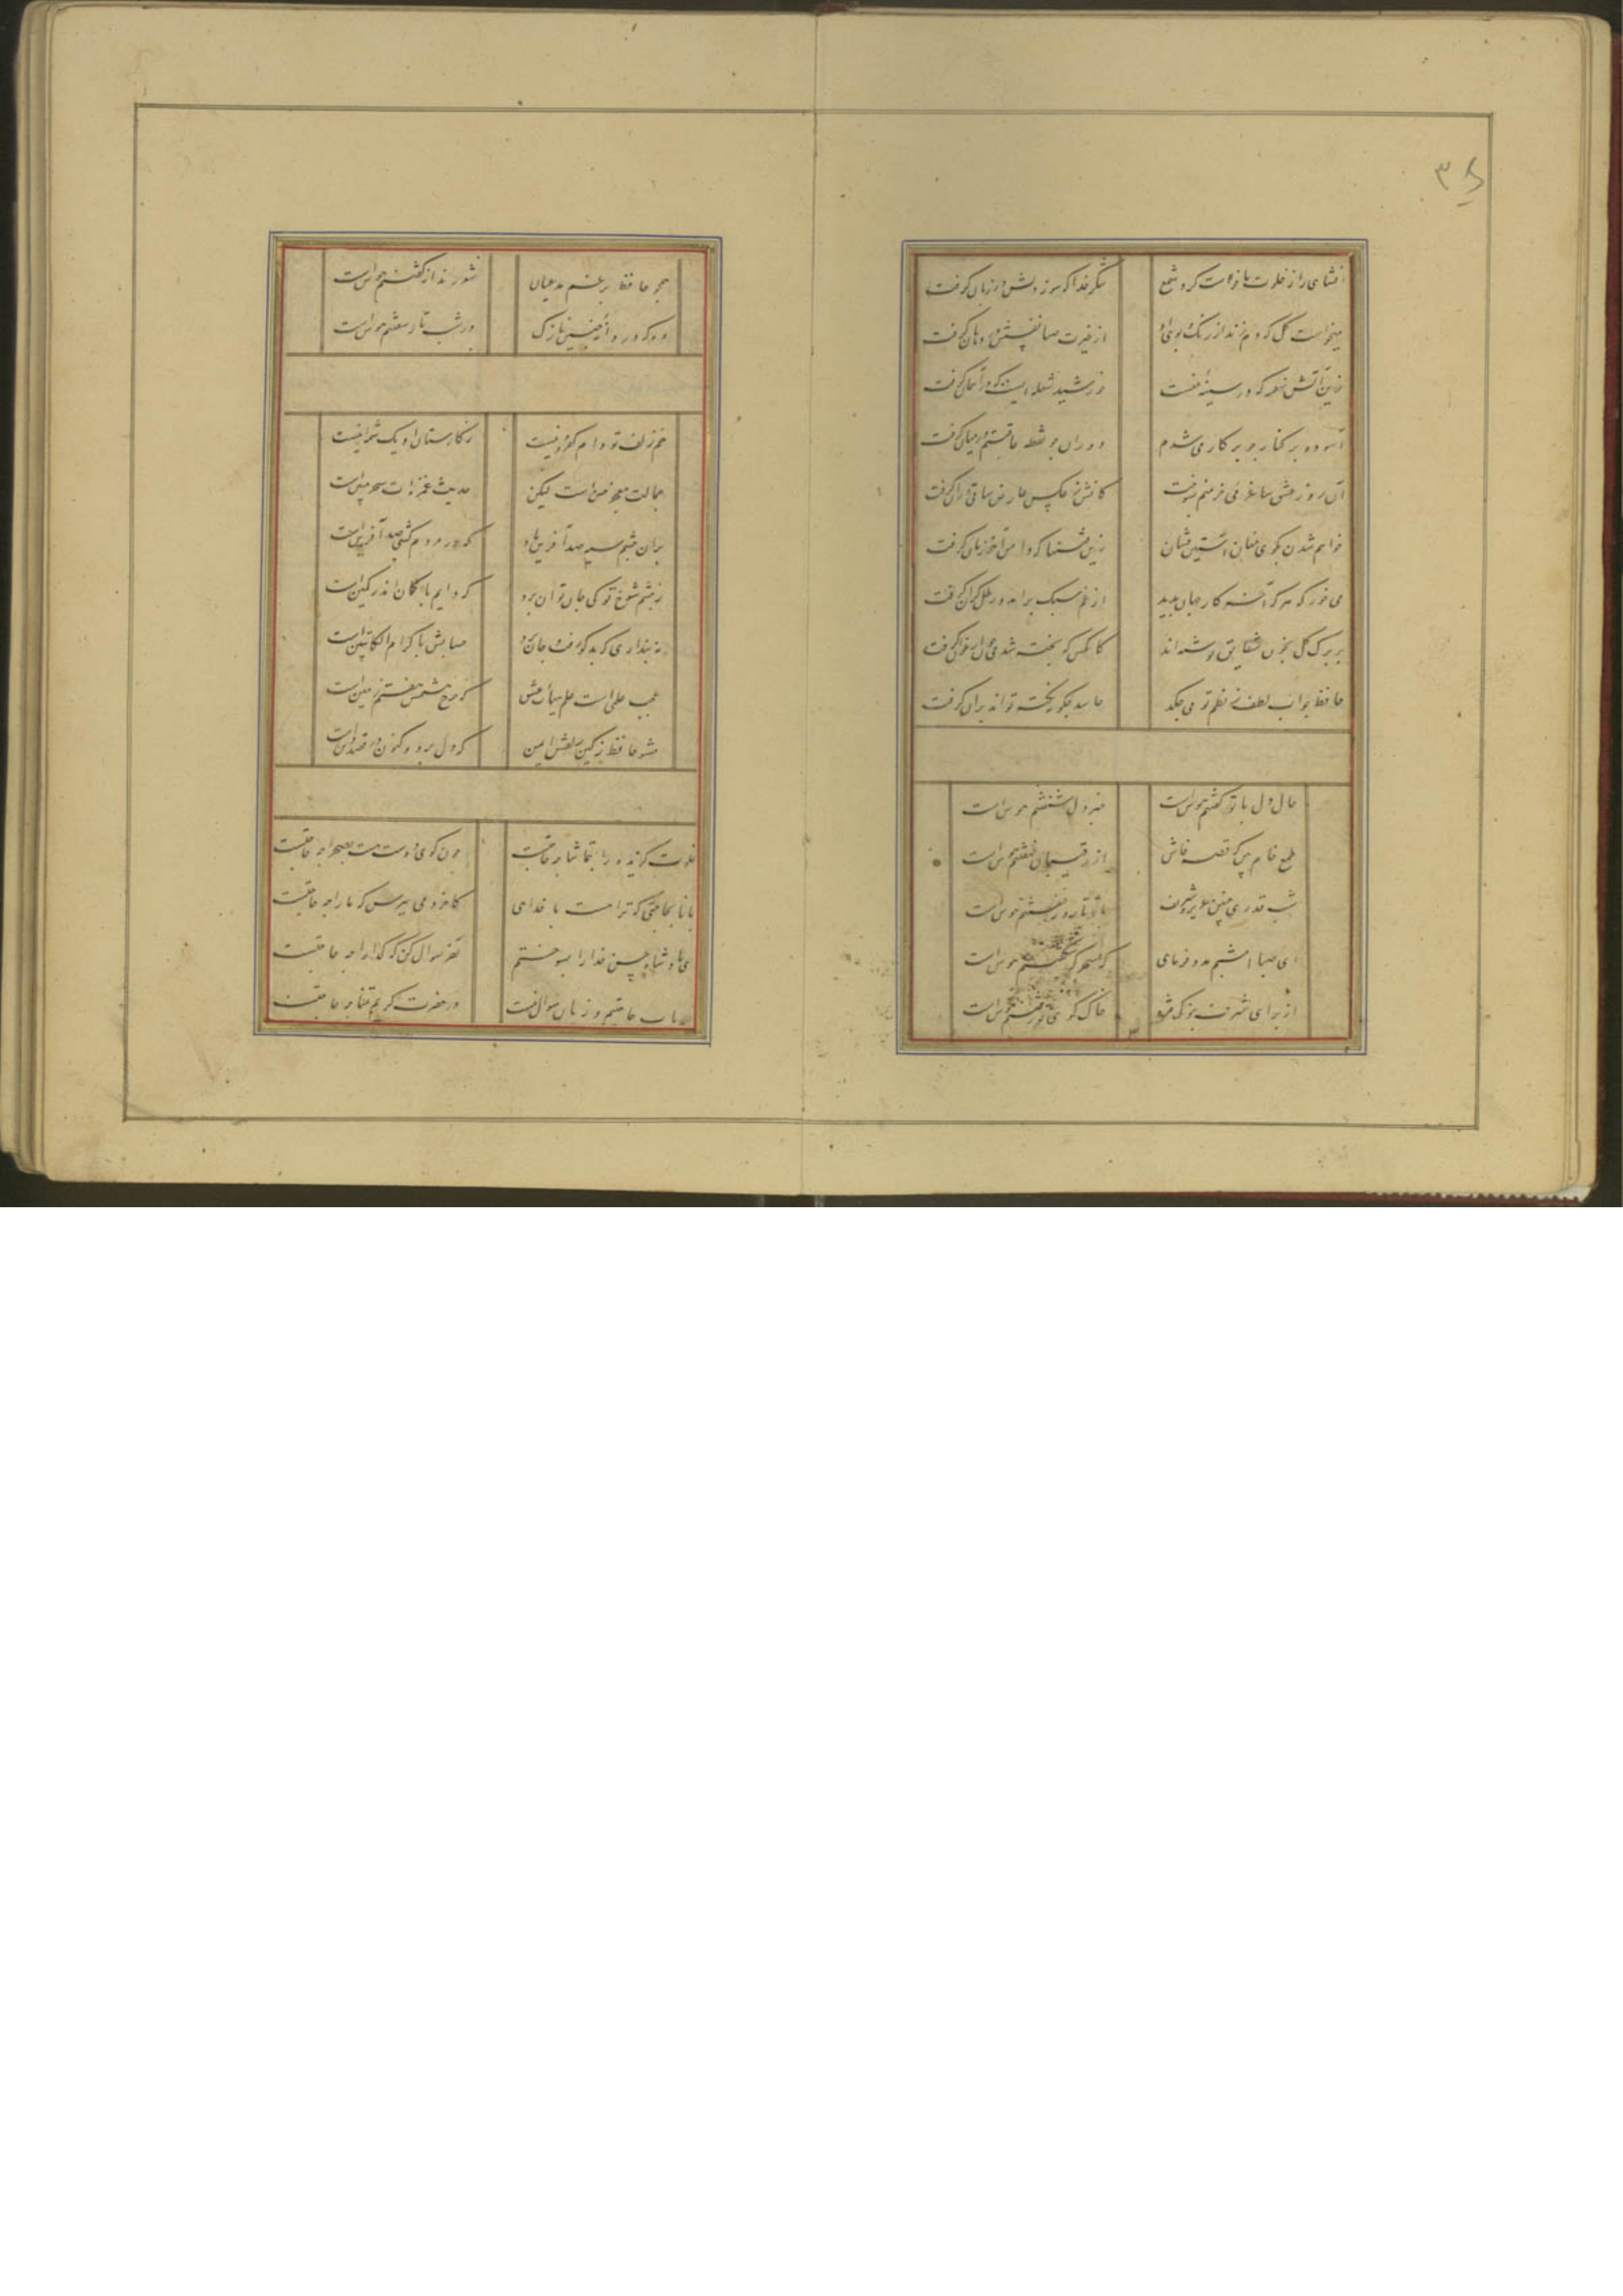 ۳۵
افشای راز خلوت ما خواست کرد شمع شکر خدا که سوز دلش در زبان گرفت
میخواست گل که دم زند از رنگ و بوی او از غیرت صبا نفسش در دهان گرفت
زین آتش نهفته که در سینه منست خورشید شعله ایست که در آسمان گرفت
آسوده بر کنار چو پرکار می شدم دوران چو نقطه عاقبتم در میان گرفت
آن روز عشق ساغر می خرمنم بسوخت کاتش ز عکس عارض ساقی در آن گرفت
خواهم شدن بکوی مغان آستین فشان زین فتنها که دامن آخر زمان گرفت
می خور که هر که آخر کار جهان بدید از غم سبک برآمد و رطل گران گرفت
بر برک گل بخون شقایق نوشته اند کانکس که پخته شد می چون ارغوان گرفت
حافظ چو آب لطف ز نظم تو می چکد حاسد چگونه نکته تواند بران گرفت
حال دل با تو گفتنم هوس است خبر دل شنفتنم هوس است
طمع خام بین که قصه فاش از رقیبان نهفتنم هوس است
شب قدری چنین عزیز شریف با تو تا روز خفتنم هوس است
ای صبا امشبم مدد فرمای که سحرگه شکفتنم هوس است
از برای شرف بنوک مژه خاک کوی تو رفتنم هوس است
همچو حافظ برغم مدعیان شعر رندانه گفتنم هوس است
وه که دردانه چنین نازک در شب تار سفتنم هوس است
خم زلف تو دام کفر و دینست ز کارستان او یک شمه اینست
جمالت معجز حسن است لیکن حدیث غمزه ات سحر مبین است
بران چشم سیه صد آفرین باد که در مردم کشی صد آفرین است
ز چشم شوخ تو کی جان توان برد که دایم با کمان اندر کمین است
نه پنداری که بد گو رفت و جان برد حسابش با کرام الکاتبین است
عجب علمی است علم هیأت عشق که چرخ هشتمش هفتم زمین است
مشو حافظ ز کین زلفش ایمن که دل برد و کنون در قصد دین است
خلوت گزیده را بتماشا چه حاجتست چون کوی دوست هست بصحرا چه حاجتست
جانا بحاجتی که ترا هست با خدای کاخر دمی بپرس که ما را چه حاجتست
ای پادشاه حسن خدا را بسوختیم آخر سوال کن که گدا را چه حاجتست
ارباب حاجتیم و زبان سوال نیست در حضرت کریم تمنا چه حاجتست